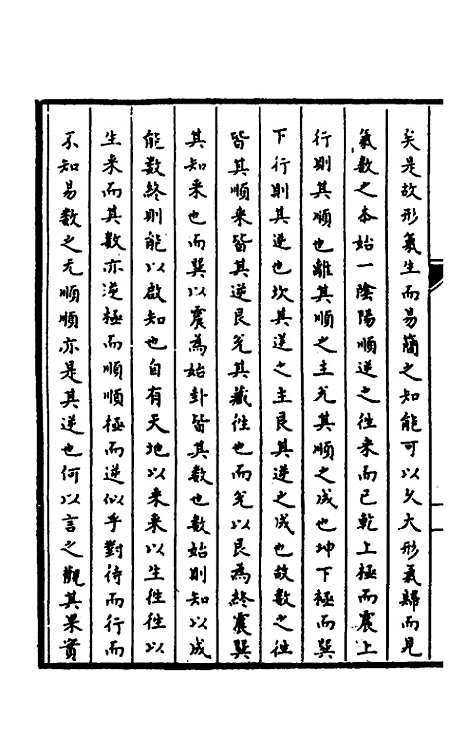 矣是故形氣生而易簡之知能可以久大形氣歸而見
氣數之本始一陰陽順逆之徃来而已乾上極而震上
行則其順也離其順之主兊其順之成也坤下極而巽
下行則其逆也坎其逆之主艮其逆之成也故數之徃
皆其順来皆其逆艮兊其蔵徃也而兊以艮為終震巽
其知来也而巽以震為始卦皆其数也数始則知以成
能数終則能以啟知也自有天地以来来以生徃徃以
生来而其数亦逆極而順順極而逆似乎對待而行而
不知易数之无順順亦是其逆也何以言之觀其果實